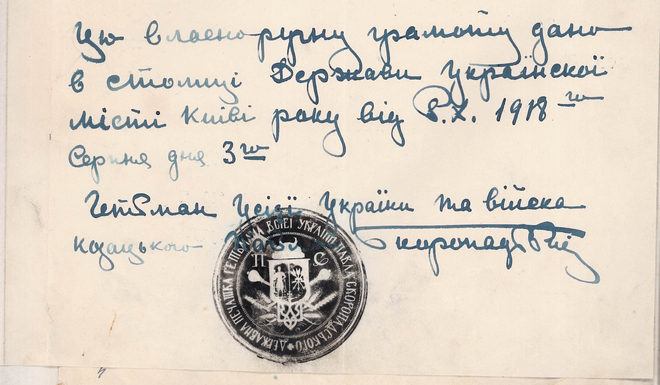 Цю власноручну грамоту дано
в столиці Держави Української
місті Київі року від Р.Х. 1918 го
Серпня дня 3 го
Гетьман Усієї України та війска
козацького Павло Скоропадський
ДЕРЖАВНА ПЕЧАТКА ГЕТЬМАНА ВСІЕЇ УКРАЇНИ ПАВЛА СКОРОПАДСЬКОГО
П С